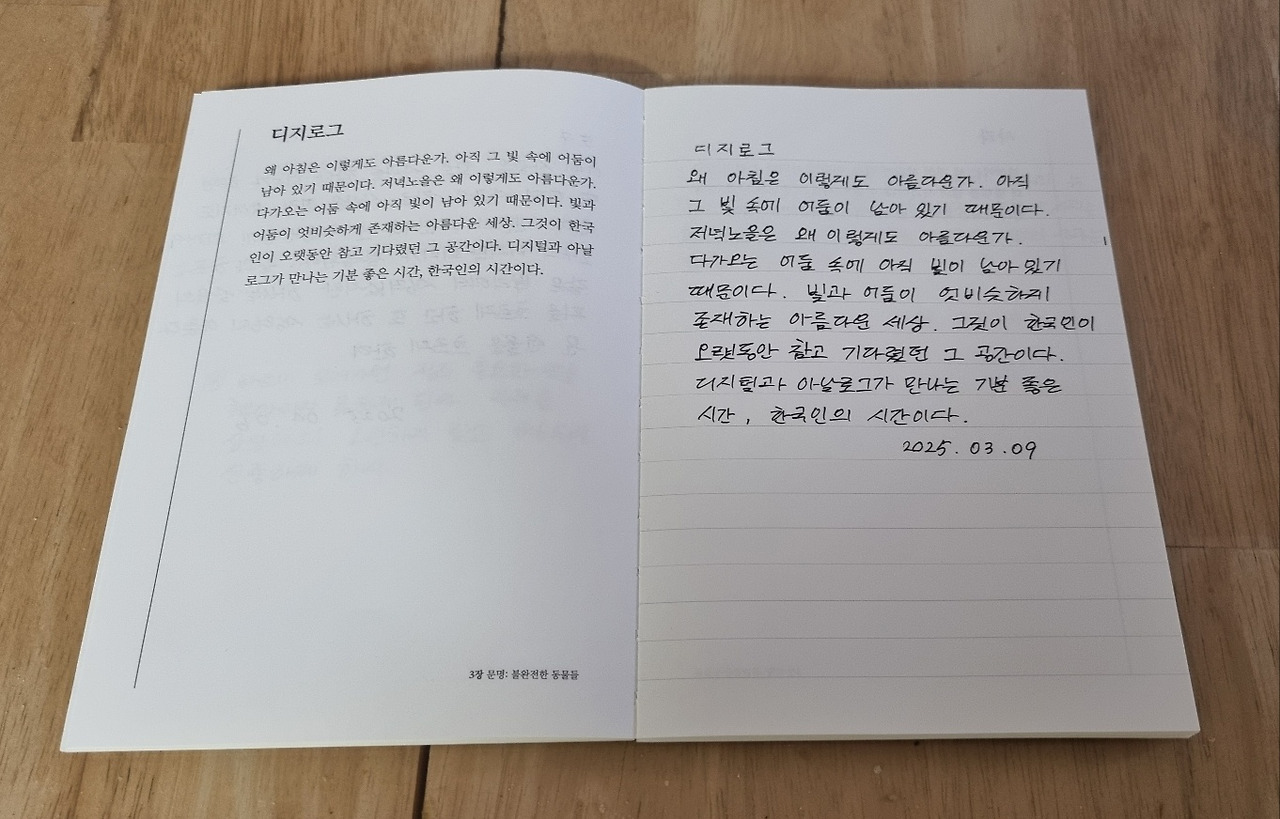 디지로그
왜 아침은 이렇게도 아름다운가. 아직 그 빛 속에 어둠이
남아 있기 때문이다. 저녁노을은 왜 이렇게도 아름다운가.
다가오는 어둠 속에 아직 빛이 남아 있기 때문이다. 빛과
어둠이 엇비슷하게 존재하는 아름다운 세상. 그것이 한국
인이 오랫동안 참고 기다렸던 그 공간이다. 디지털과 아날
로그가 만나는 기분 좋은 시간, 한국인의 시간이다.
3장 문명: 불완전한 동물들
디지로그
왜 아침은 이렇게도 아름다운가. 아직
그 빛 속에 어둠이 남아 있기 때문이다.
저녁노을은 왜 이렇게도 아름다운가.
다가오는 어둠 속에 아직 빛이 남아 있기
때문이다. 빛과 어둠이 엇비슷하게
존재하는 아름다운 세상. 그것이 한국인이
오랫동안 참고 기다렸던 그 공간이다.
디지털과 아날로그가 만나는 기분 좋은
시간, 한국인의 시간이다.
2025.03.09